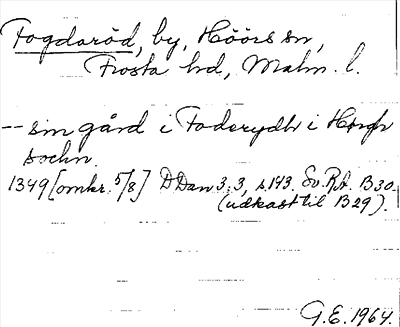 Fogdaröd, by, Höörs sn,
Frosta hd, Malm. l.
-- sin gård i Foderydh i Hörgh
sochn.
1349 [omkr. 5/8] DDan 3:3, s 143. Sv. RA. B 30.
(udkast til B 29).
G.E. 1964.